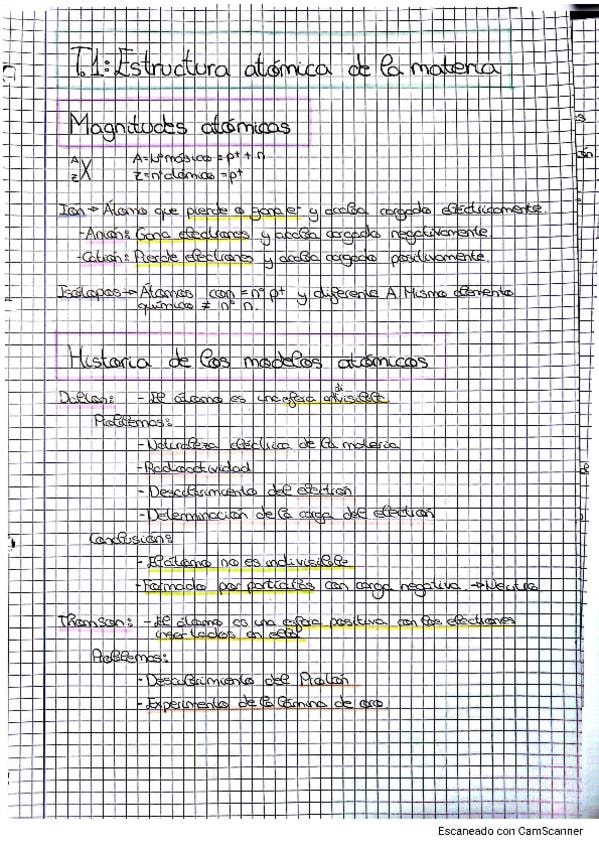 T.1: Estructura atómica de la materia
Magnitudes atómicas
A
Z X
A = Nº másico = p+ + n
Z = nº atómico = p+
Ion → Átomo que pierde o gana e- y acaba cargado eléctricamente.
- Anión: Gana electrones y acaba cargado negativamente.
- Catión: Pierde electrones y acaba cargado positivamente.
Isótopos → Átomos con = nº p+ y diferente A. Mismo elemento
químico ≠ nº n.
Historia de los modelos atómicos
Dalton: - El átomo es una esfera indivisible
Problemas:
- Naturaleza eléctrica de la materia
- Radioactividad
- Descubrimiento del electrón
- Determinación de la carga del electrón
Conclusión:
- El átomo no es indivisible
- Formado por partículas con carga negativa. → Neutro
Thomson: - El átomo es una esfera positiva con los electrones
insertados en ella
Problemas:
- Descubrimiento del Protón
- Experimento de la lámina de oro.
Escaneado con CamScanner